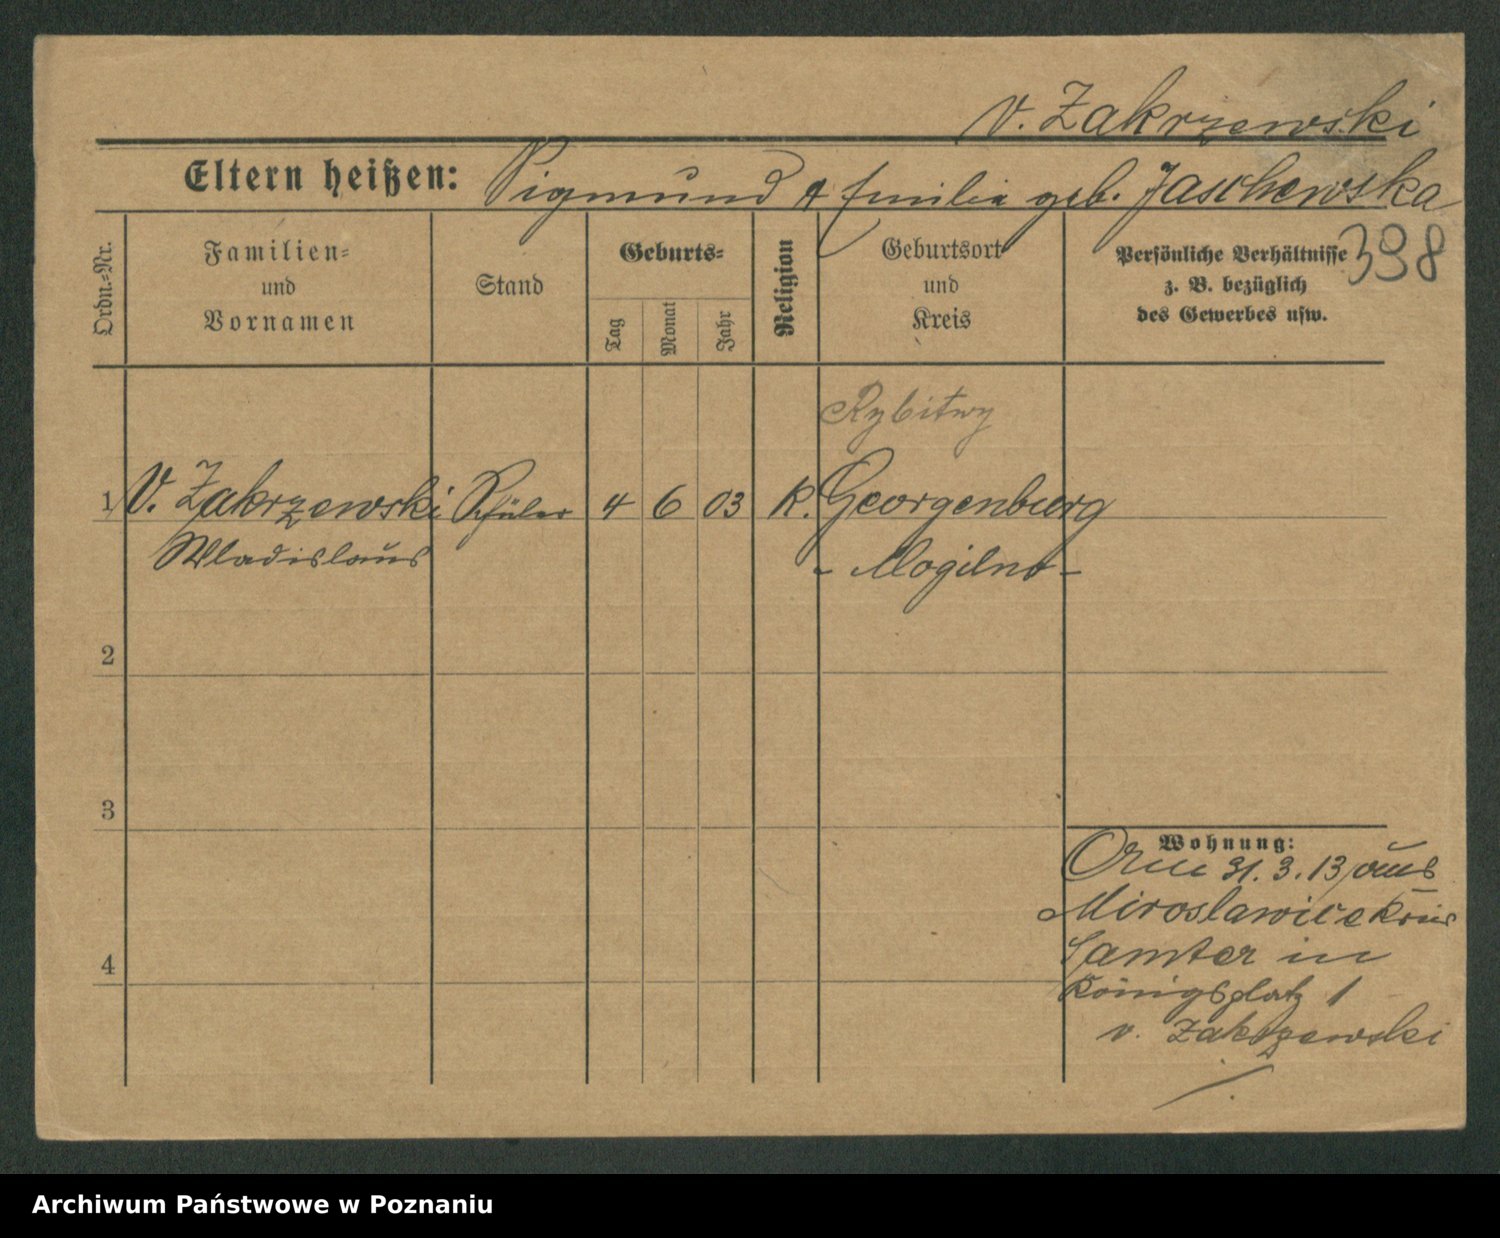 v. Zakrzewski
Eltern heißen: Sigmund & Emilia geb. Jaschewska
398
Ordn.-Nr.
Familien-
und
Vornamen
Stand
Geburts-
Tag
Monat
Jahr
Religion
Geburtsort
und
Kreis
Persönliche Verhältnisse
z. B. bezüglich
des Gewerbes usw.
Rybitwy
1 v. Zakrzewski Schüler 4 6 03 K. Georgenburg
Wladislaus - Mogilno -
2
3
4
Wohnung:
31.3.13 aus
Miroslawice Kreis
Samter in
Königsplatz 1
v. Zakrzewski
Archiwum Państwowe w Poznaniu